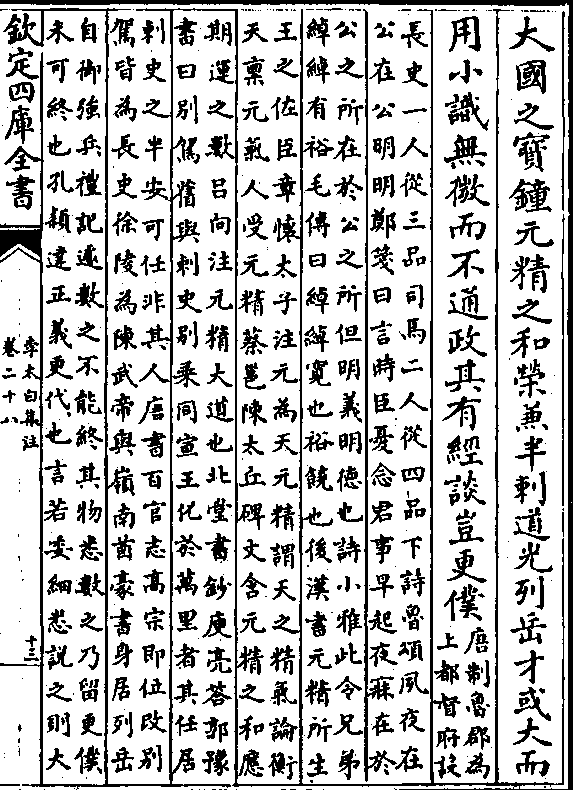 大國之寳鐘元精之和榮兼半刺道光列岳才或大而
用小識無微而不通政其有經談豈更僕
唐制魯郡為
上都督府設
長史一人從三品司馬二人從四品下詩魯頌夙夜在
公在公明明鄭箋曰言時臣憂念君事早起夜寐在於
公之所在於公之所但明義明德也詩小雅此令兄弟
綽綽有裕毛傳曰綽綽寛也裕饒也後漢書元精所生
王之佐臣章懷太子注元為天元精謂天之精氣論衡
天稟元氣人受元精蔡邕陳太丘碑文含元精之和應
期運之數吕向注元精大道也北堂書鈔庾亮答郭豫
書曰别駕舊與刺史别乘同宣王化於萬里者其任居
刺史之半安可任非其人唐書百官志高宗即位改别
駕皆為長史徐陵為陳武帝與嶺南酋豪書身居列岳
自御強兵禮記遽數之不能終其物悉數之乃留更僕
未可終也孔頴達正義更代也言若委細悉説之則大
欽定四庫全書
李太白集注
卷二十八
十三